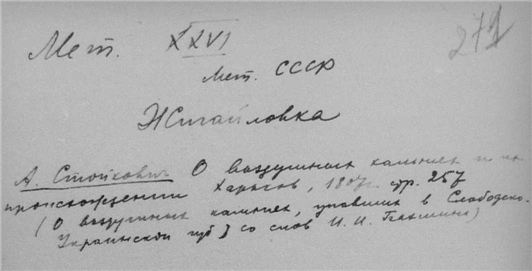 Мет. XXVI
271
Мет. СССР
Жигайловка
А. Стойкович О воздушных камнях и их
происхождении Харьков, 1807 г. стр. 257
(О воздушных камнях, упавших в Слободско-
Украинской губ.) со слов И. И.